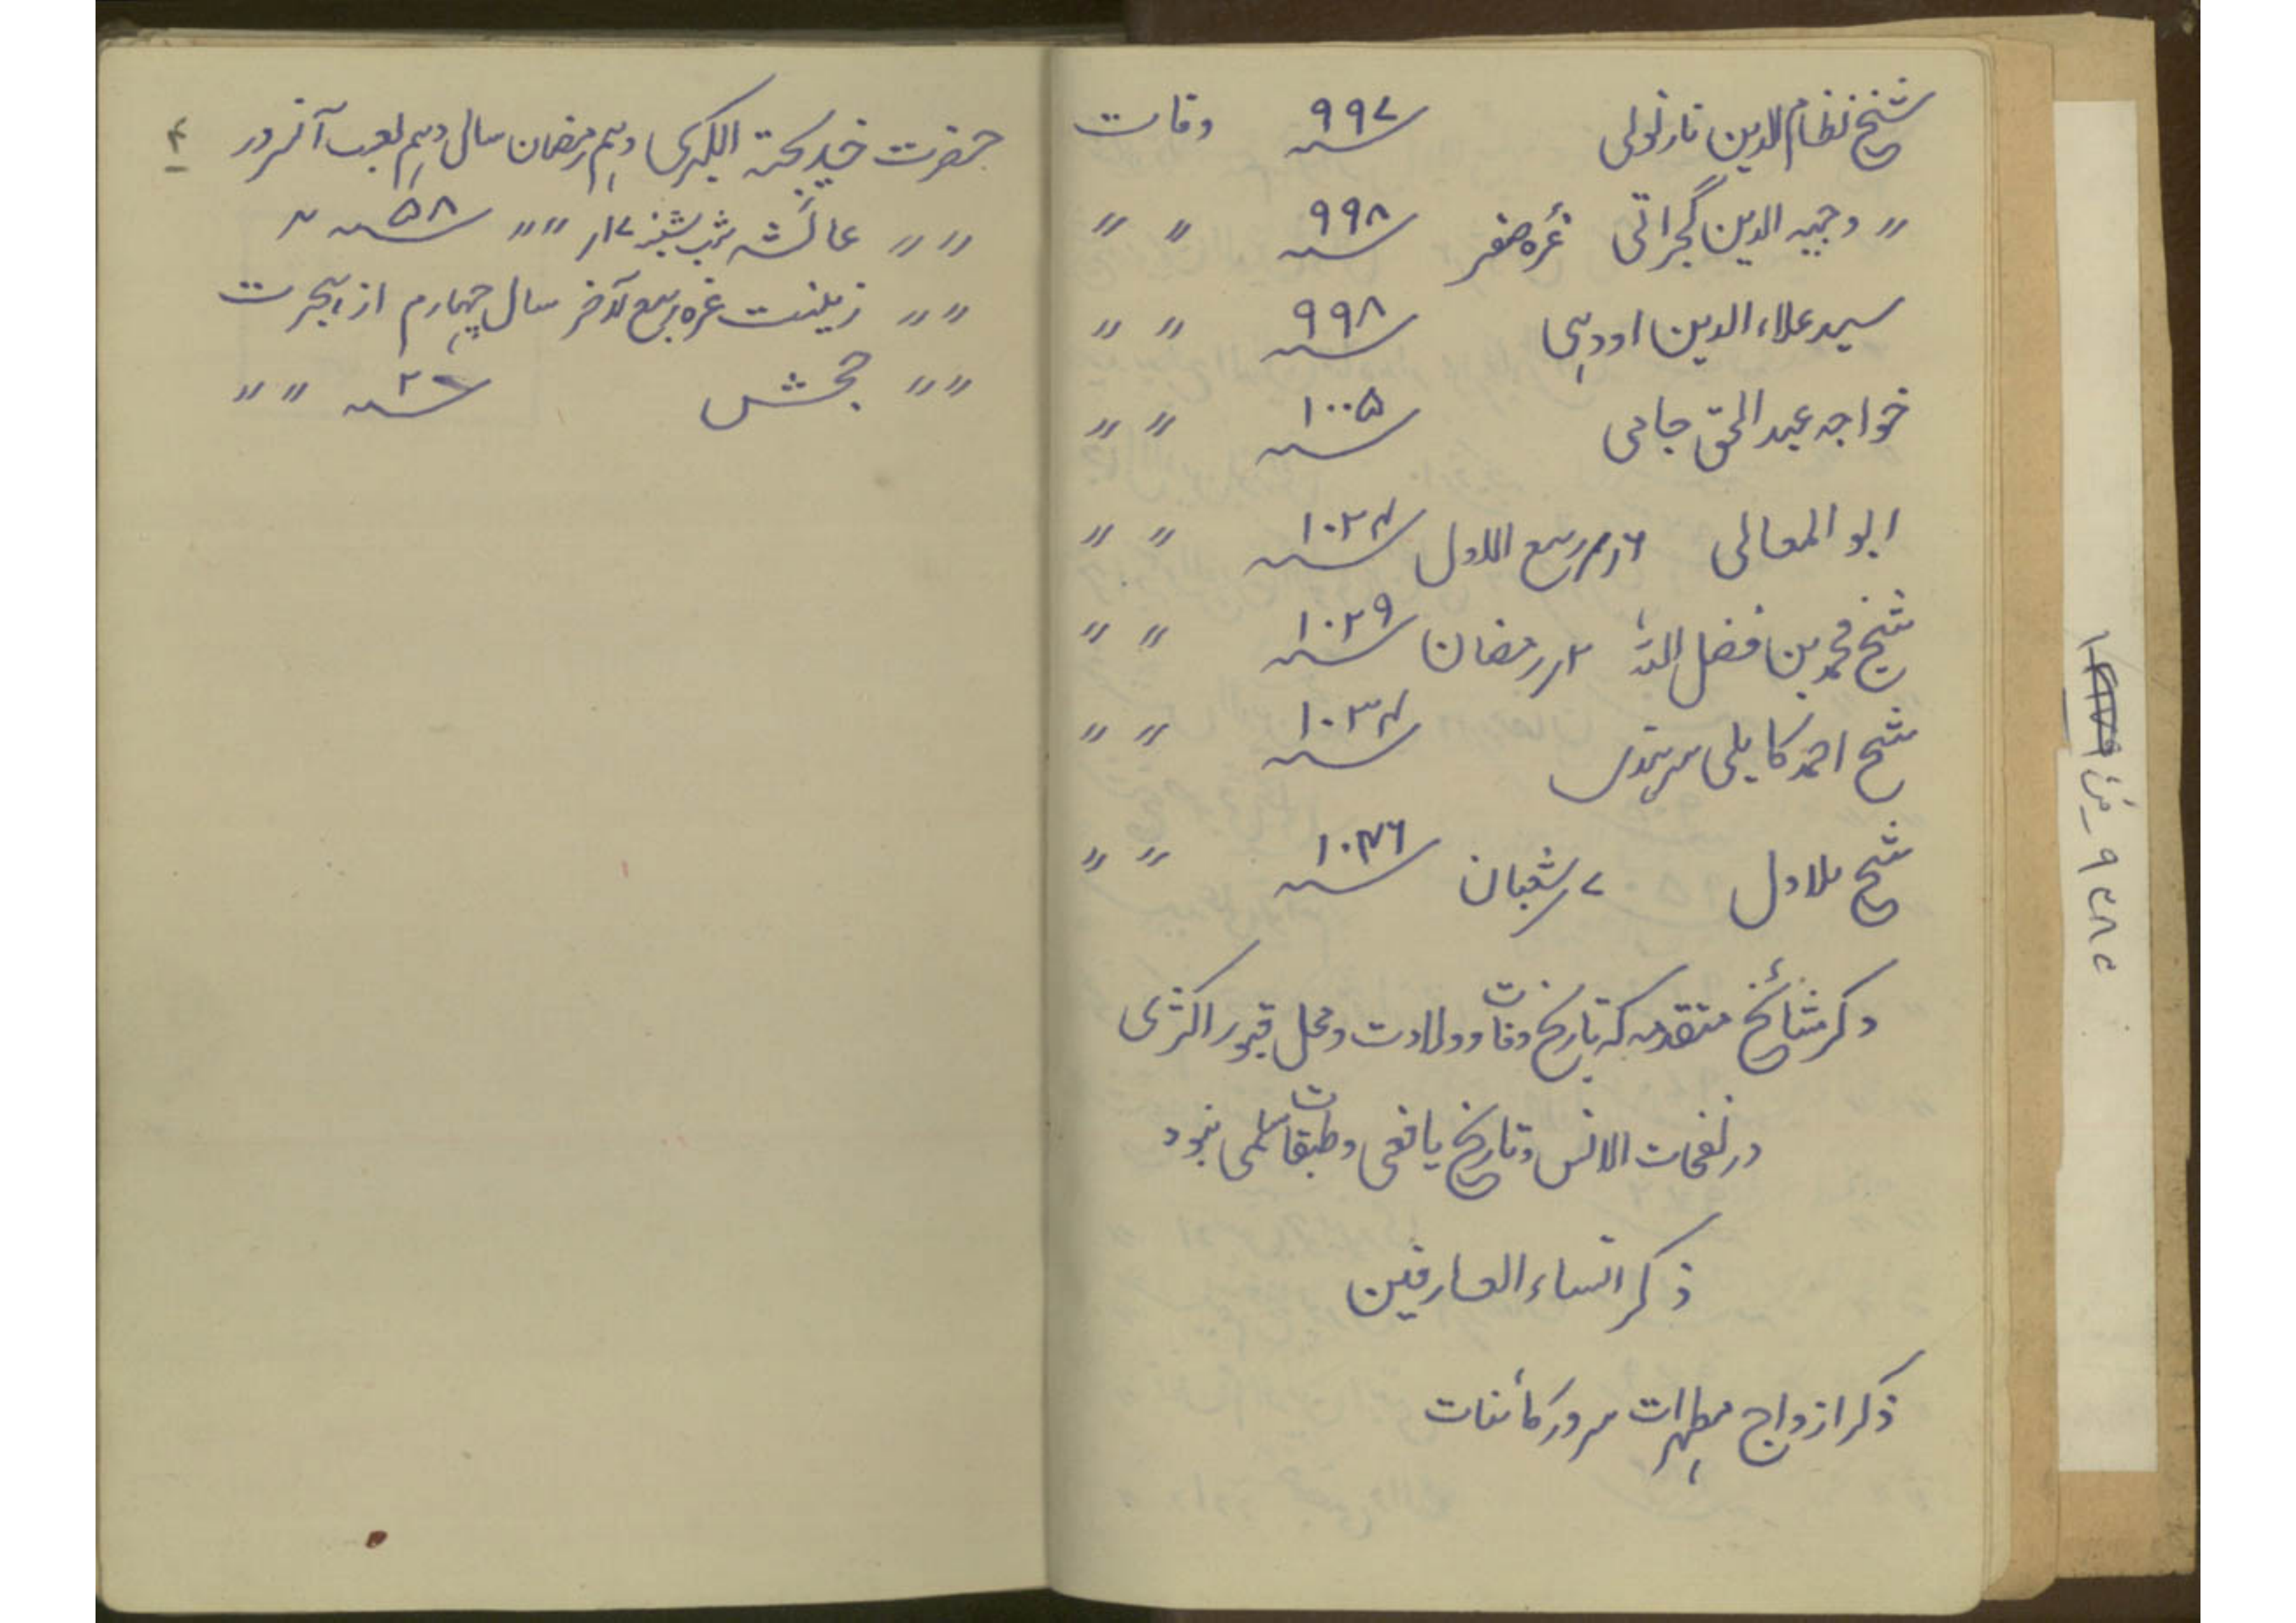 شیخ نظام الدین نارنولی ۹۹۷ سنہ وفات
〃 وجیہ الدین گجراتی غرّہ صفر ۹۹۸ سنہ 〃 〃
سید علاء الدین اودہی ۹۹۸ سنہ 〃 〃
خواجہ عبدالحق جامی ۱۰۰۵ سنہ 〃 〃
ابو المعالی ۱۶ ربیع الاول ۱۰۲۴ سنہ 〃 〃
شیخ محمد بن فضل اللہ ۲ رمضان ۱۰۲۹ سنہ 〃 〃
شیخ احمد کابلی سرہندی ۱۰۳۴ سنہ 〃 〃
شیخ بلاول ۷ شعبان ۱۰۴۶ سنہ 〃 〃
ذکر مشائخ متقدمہ کہ تاریخ وفات و ولادت و محل قبور اکثری
در نفحات الانس و تاریخ یافعی و طبقات سلمی نبود
ذکر النساء العارفین
ذکر ازواج مطہرات سرور کائنات
۴
حضرت خدیجۃ الکبری دہم رمضان سال دہم بعد آنسرور
〃 〃 عائشہ شب شنبہ ۱۷ 〃 〃 ۵۸ سنہ 〃
〃 〃 زینت غرہ ربیع الآخر سال چہارم از ہجرت
〃 〃 جحش ۲۰ سنہ 〃 〃